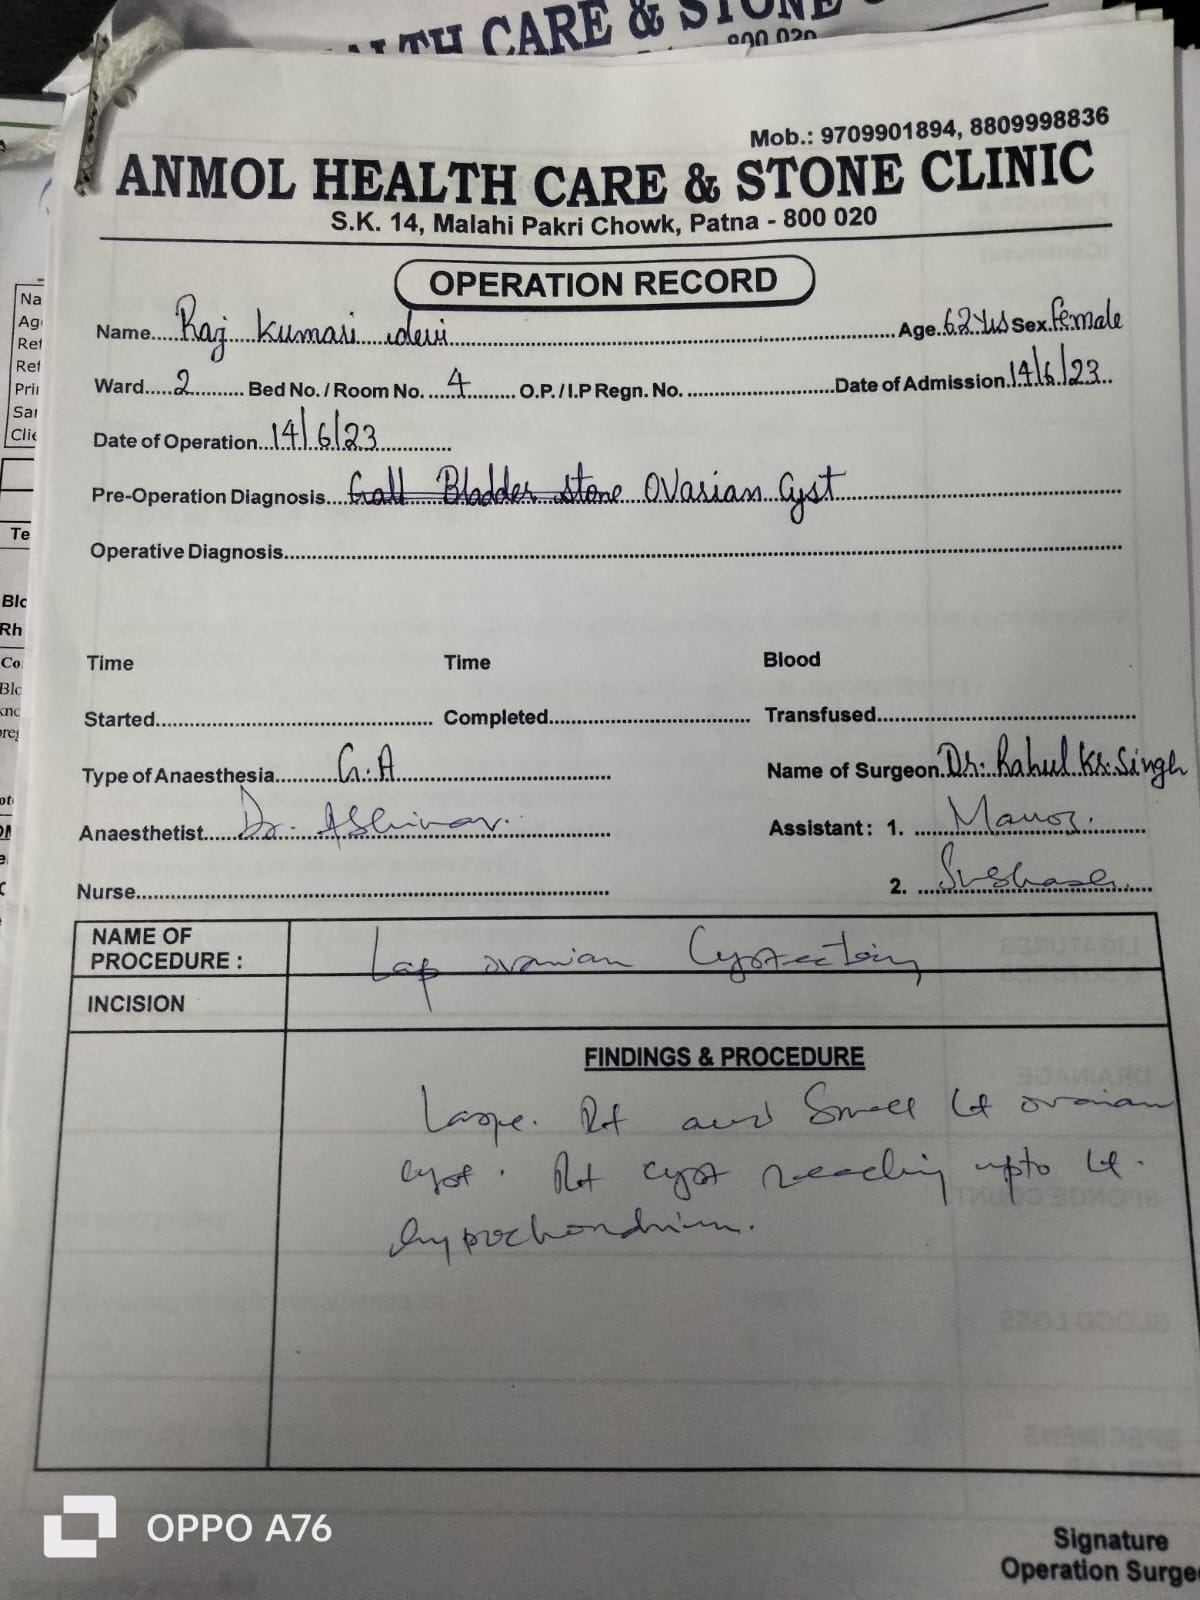 ALTH CARE & STONE
800 020
Mob.: 9709901894, 8809998836
ANMOL HEALTH CARE & STONE CLINIC
S.K. 14, Malahi Pakri Chowk, Patna - 800 020
OPERATION RECORD
Name.....Raj kumari devi..... Age..62 Yrs Sex.Female
Ward.....2..... Bed No. / Room No. ...4..... O.P. / I.P Regn. No. ..........Date of Admission.14/6/23..
Date of Operation..14/6/23..........
Pre-Operation Diagnosis...Gall Bladder stone Ovarian Cyst..........
Operative Diagnosis..........
Time Time Blood
Started.......... Completed.......... Transfused..........
Type of Anaesthesia..........G.A.......... Name of Surgeon.Dr. Rahul Kr. Singh
Anaesthetist.....Dr. .......... Assistant: 1. .....Manoj.....
Nurse.......... 2. ..........
NAME OF
PROCEDURE : Lap ovarian Cystectomy
INCISION
FINDINGS & PROCEDURE
Large. Rt and Small Lt ovarian
cyst. Rt cyst reaching upto Lt.
hypochondrium.
OPPO A76
Signature
Operation Surge
Na
Ag
Ref
Ref
Pri
Sa
Clie
Te
Blo
Rh
Co